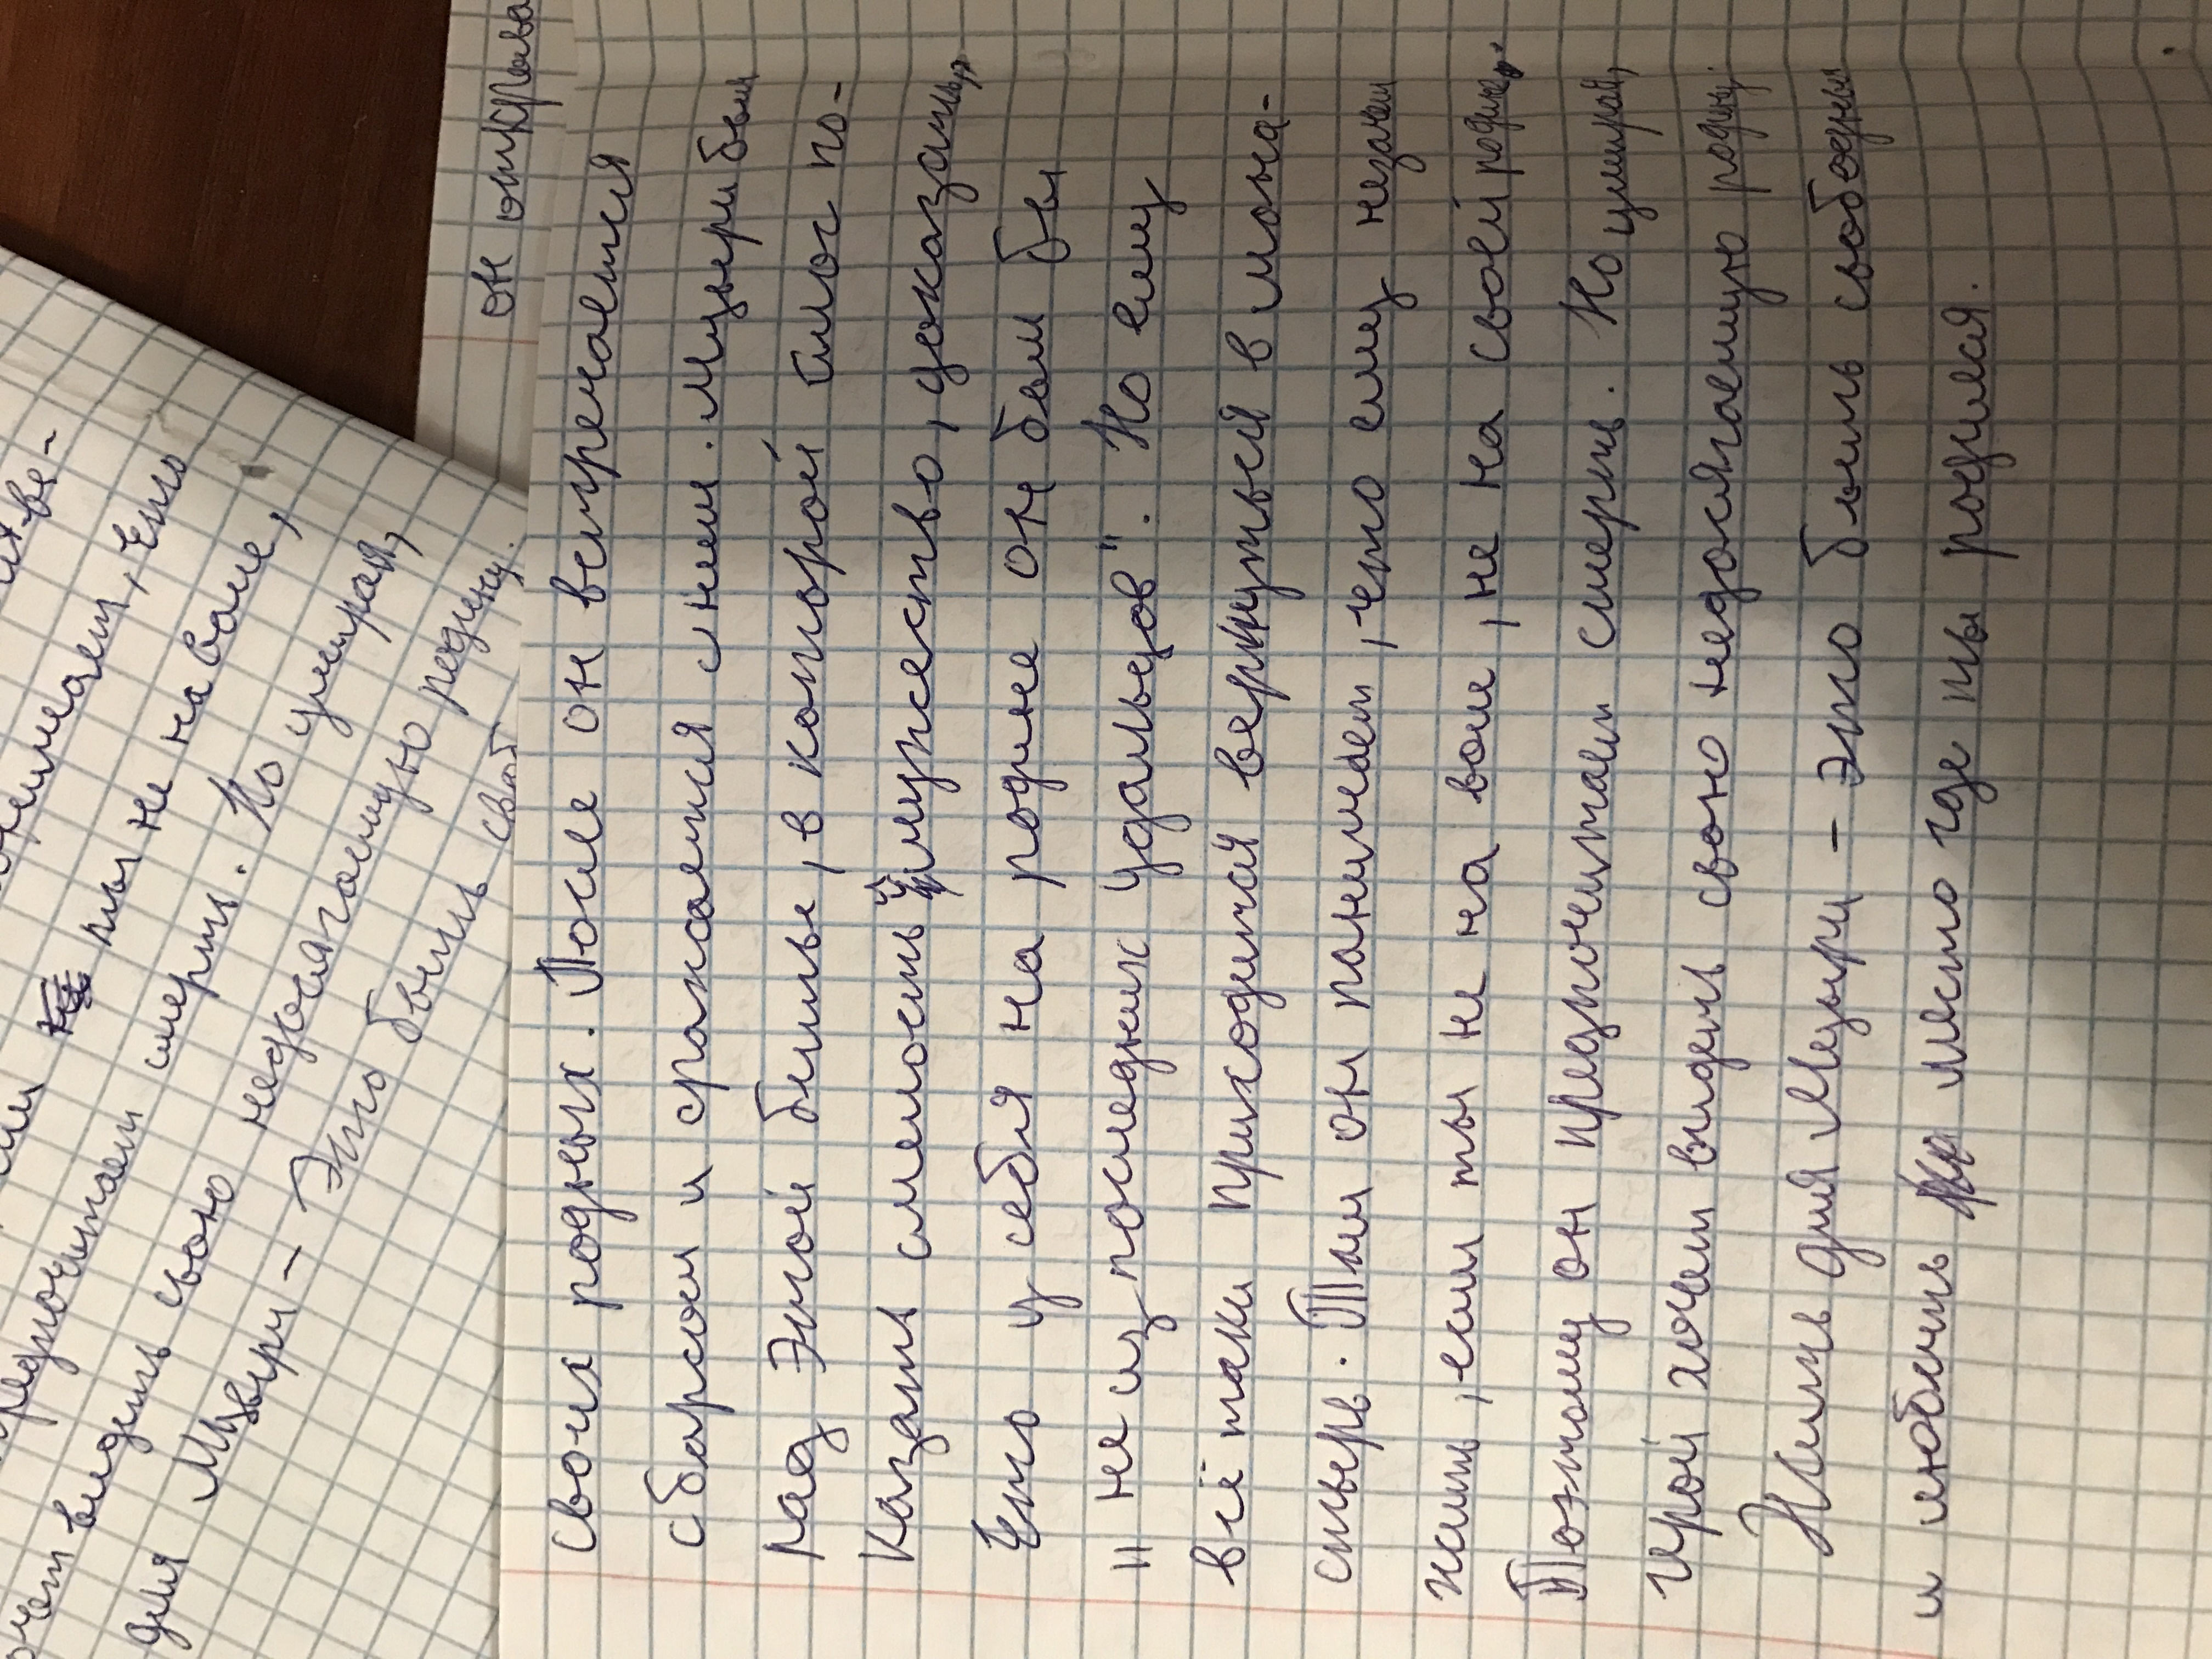 он открыва
своих родных. После он встречается
с барсом и сражается с ним. Мцыри был
рад этой битве, в которой смог по-
казать смелость и мужество, доказать,
что у себя на родине он был бы
"не из последних удальцов". Но ему
всё таки приходится вернуться в мона-
стырь. Там он понимает, что ему незачем
жить, если ты не на воле, не на своей родине.
Поэтому он предпочитает смерть. Но умирая,
герой хочет видеть свою недосягаемую родину.
Жить для Мцыри - это быть свободным
и любить место где ты родился.
понимает, что
ты не на воле,
предпочитает смерть. Но умирая,
хочет видеть свою недосягаемую родину.
для Мцыри - это быть своб